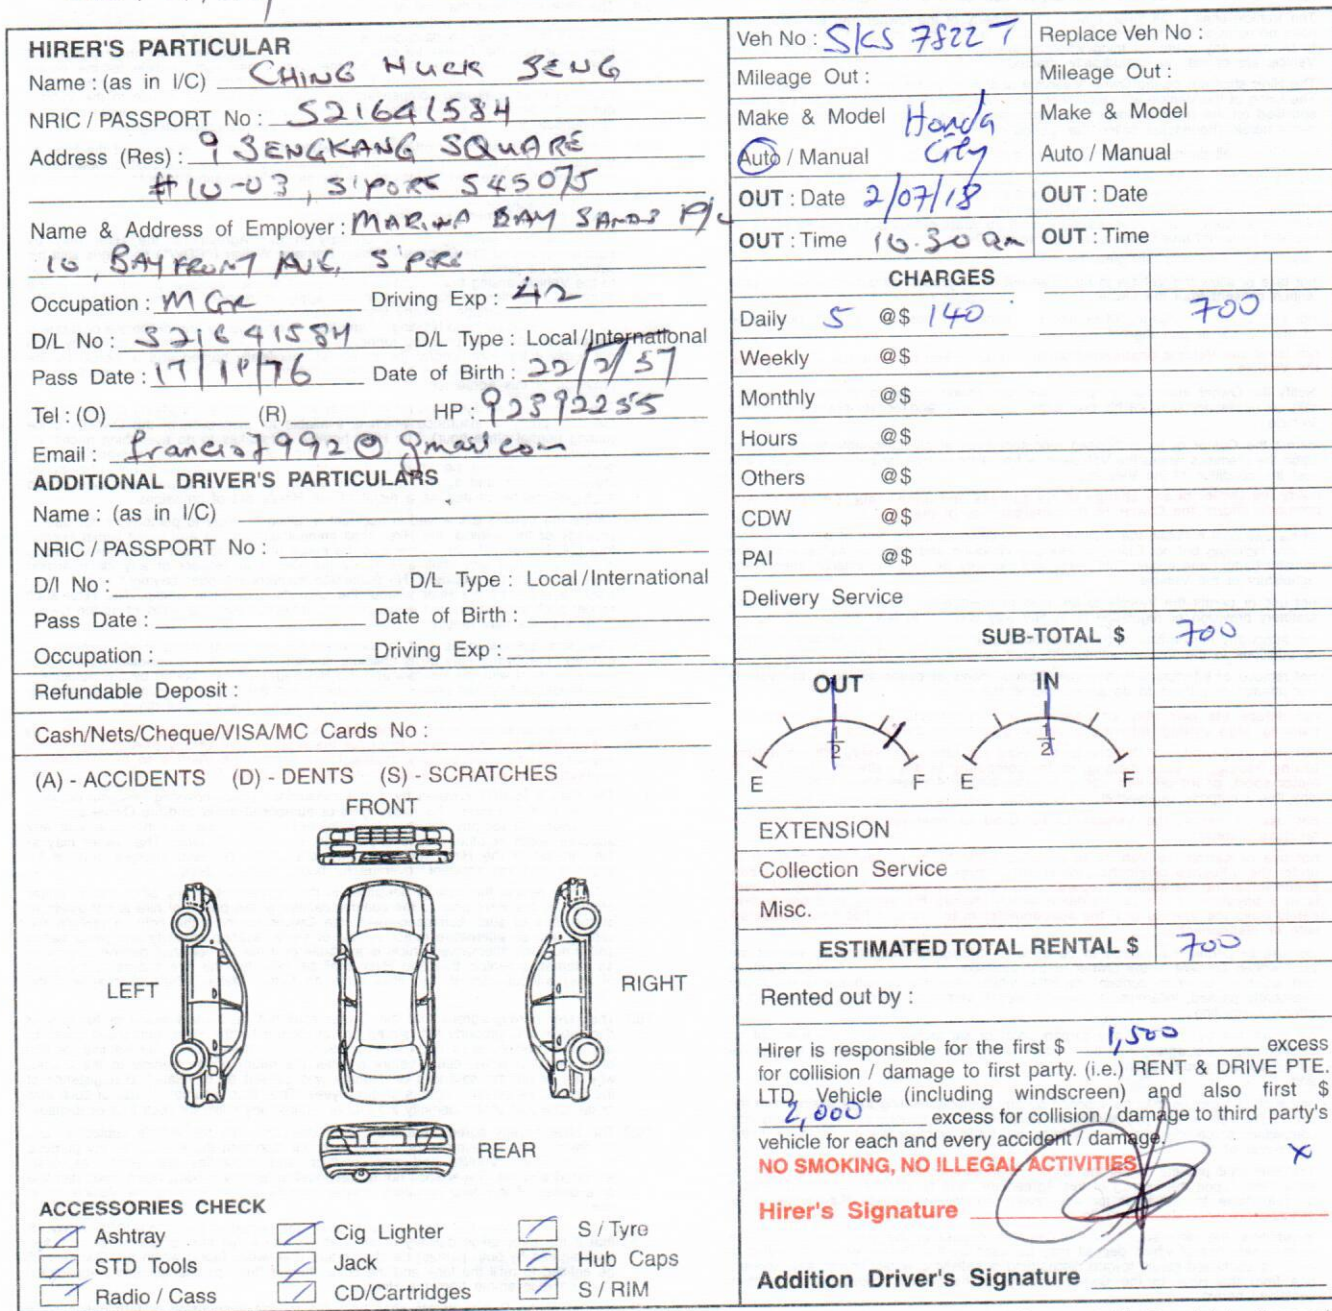 HIRER'S PARTICULAR
Name : (as in I/C) CHING HUCK SENG
NRIC / PASSPORT No : S2164158H
Address (Res) : 9 SENGKANG SQUARE
#10-03, S'PORE 545075
Name & Address of Employer : MARINA BAY SANDS P/L
10, BAYFRONT AVE, S'PORE
Occupation : MGR Driving Exp : 42
D/L No : S2164158H D/L Type : Local / International
Pass Date : 17/11/76 Date of Birth : 22/2/57
Tel : (O) (R) HP : 92392255
Email : francis7992@gmail.com
ADDITIONAL DRIVER'S PARTICULARS
Name : (as in I/C)
NRIC / PASSPORT No :
D/l No : D/L Type : Local / International
Pass Date : Date of Birth :
Occupation : Driving Exp :
Refundable Deposit :
Cash/Nets/Cheque/VISA/MC Cards No :
(A) - ACCIDENTS (D) - DENTS (S) - SCRATCHES
FRONT
LEFT
RIGHT
REAR
ACCESSORIES CHECK
Ashtray Cig Lighter S / Tyre
STD Tools Jack Hub Caps
Radio / Cass CD/Cartridges S / RIM
Veh No : SKS 7822 T Replace Veh No :
Mileage Out : Mileage Out :
Make & Model Honda City Make & Model
Auto / Manual Auto / Manual
OUT : Date 2/07/18 OUT : Date
OUT : Time 10.30 am OUT : Time
CHARGES
Daily 5 @$ 140 700
Weekly @$
Monthly @$
Hours @$
Others @$
CDW @$
PAI @$
Delivery Service
SUB-TOTAL $ 700
OUT IN
1/2 1/2
E F E F
EXTENSION
Collection Service
Misc.
ESTIMATED TOTAL RENTAL $ 700
Rented out by :
Hirer is responsible for the first $ 1,500 excess
for collision / damage to first party. (i.e.) RENT & DRIVE PTE.
LTD Vehicle (including windscreen) and also first $
2,000 excess for collision / damage to third party's
vehicle for each and every accident / damage.
NO SMOKING, NO ILLEGAL ACTIVITIES x
Hirer's Signature
Addition Driver's Signature